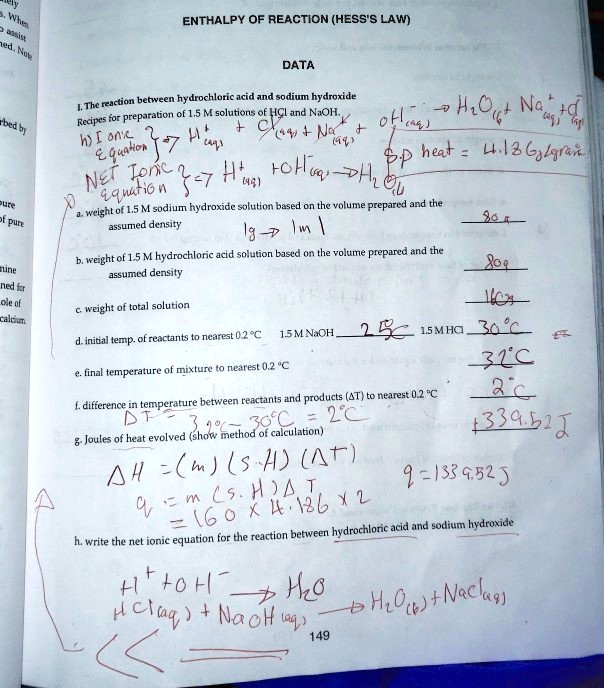 ENTHALPY OF REACTION (HESS'S LAW)
DATA
I. The reaction between hydrochloric acid and sodium hydroxide
Recipes for preparation of 1.5 M solutions of HCl and NaOH.
h) Ionic Equation } => H+(aq) + Cl-(aq) + Na+(aq) + OH-(aq) → H2O(l) + Na+(aq) + Cl-(aq)
NET Ionic equation } => H+(aq) + OH-(aq) → H2O(l)
Sp heat = 4.186 J/gram
a. weight of 1.5 M sodium hydroxide solution based on the volume prepared and the
assumed density
80 g
1g → 1ml
b. weight of 1.5 M hydrochloric acid solution based on the volume prepared and the
assumed density
80g
c. weight of total solution
160g
d. initial temp. of reactants to nearest 0.2 °C 1.5 M NaOH 1.5 M HCl 30°C
e. final temperature of mixture to nearest 0.2 °C
32°C
f. difference in temperature between reactants and products (ΔT) to nearest 0.2 °C
2°C
ΔT = 32°C - 30°C = 2°C
g. Joules of heat evolved (show method of calculation)
1339.52 J
ΔH = (m) (S.H) (ΔT)
q = 1339.52 J
q = m (S.H) ΔT
= 160 x 4.186 x 2
h. write the net ionic equation for the reaction between hydrochloric acid and sodium hydroxide
H+ + OH- → H2O
HCl(aq) + NaOH(aq) → H2O(l) + NaCl(aq)
149